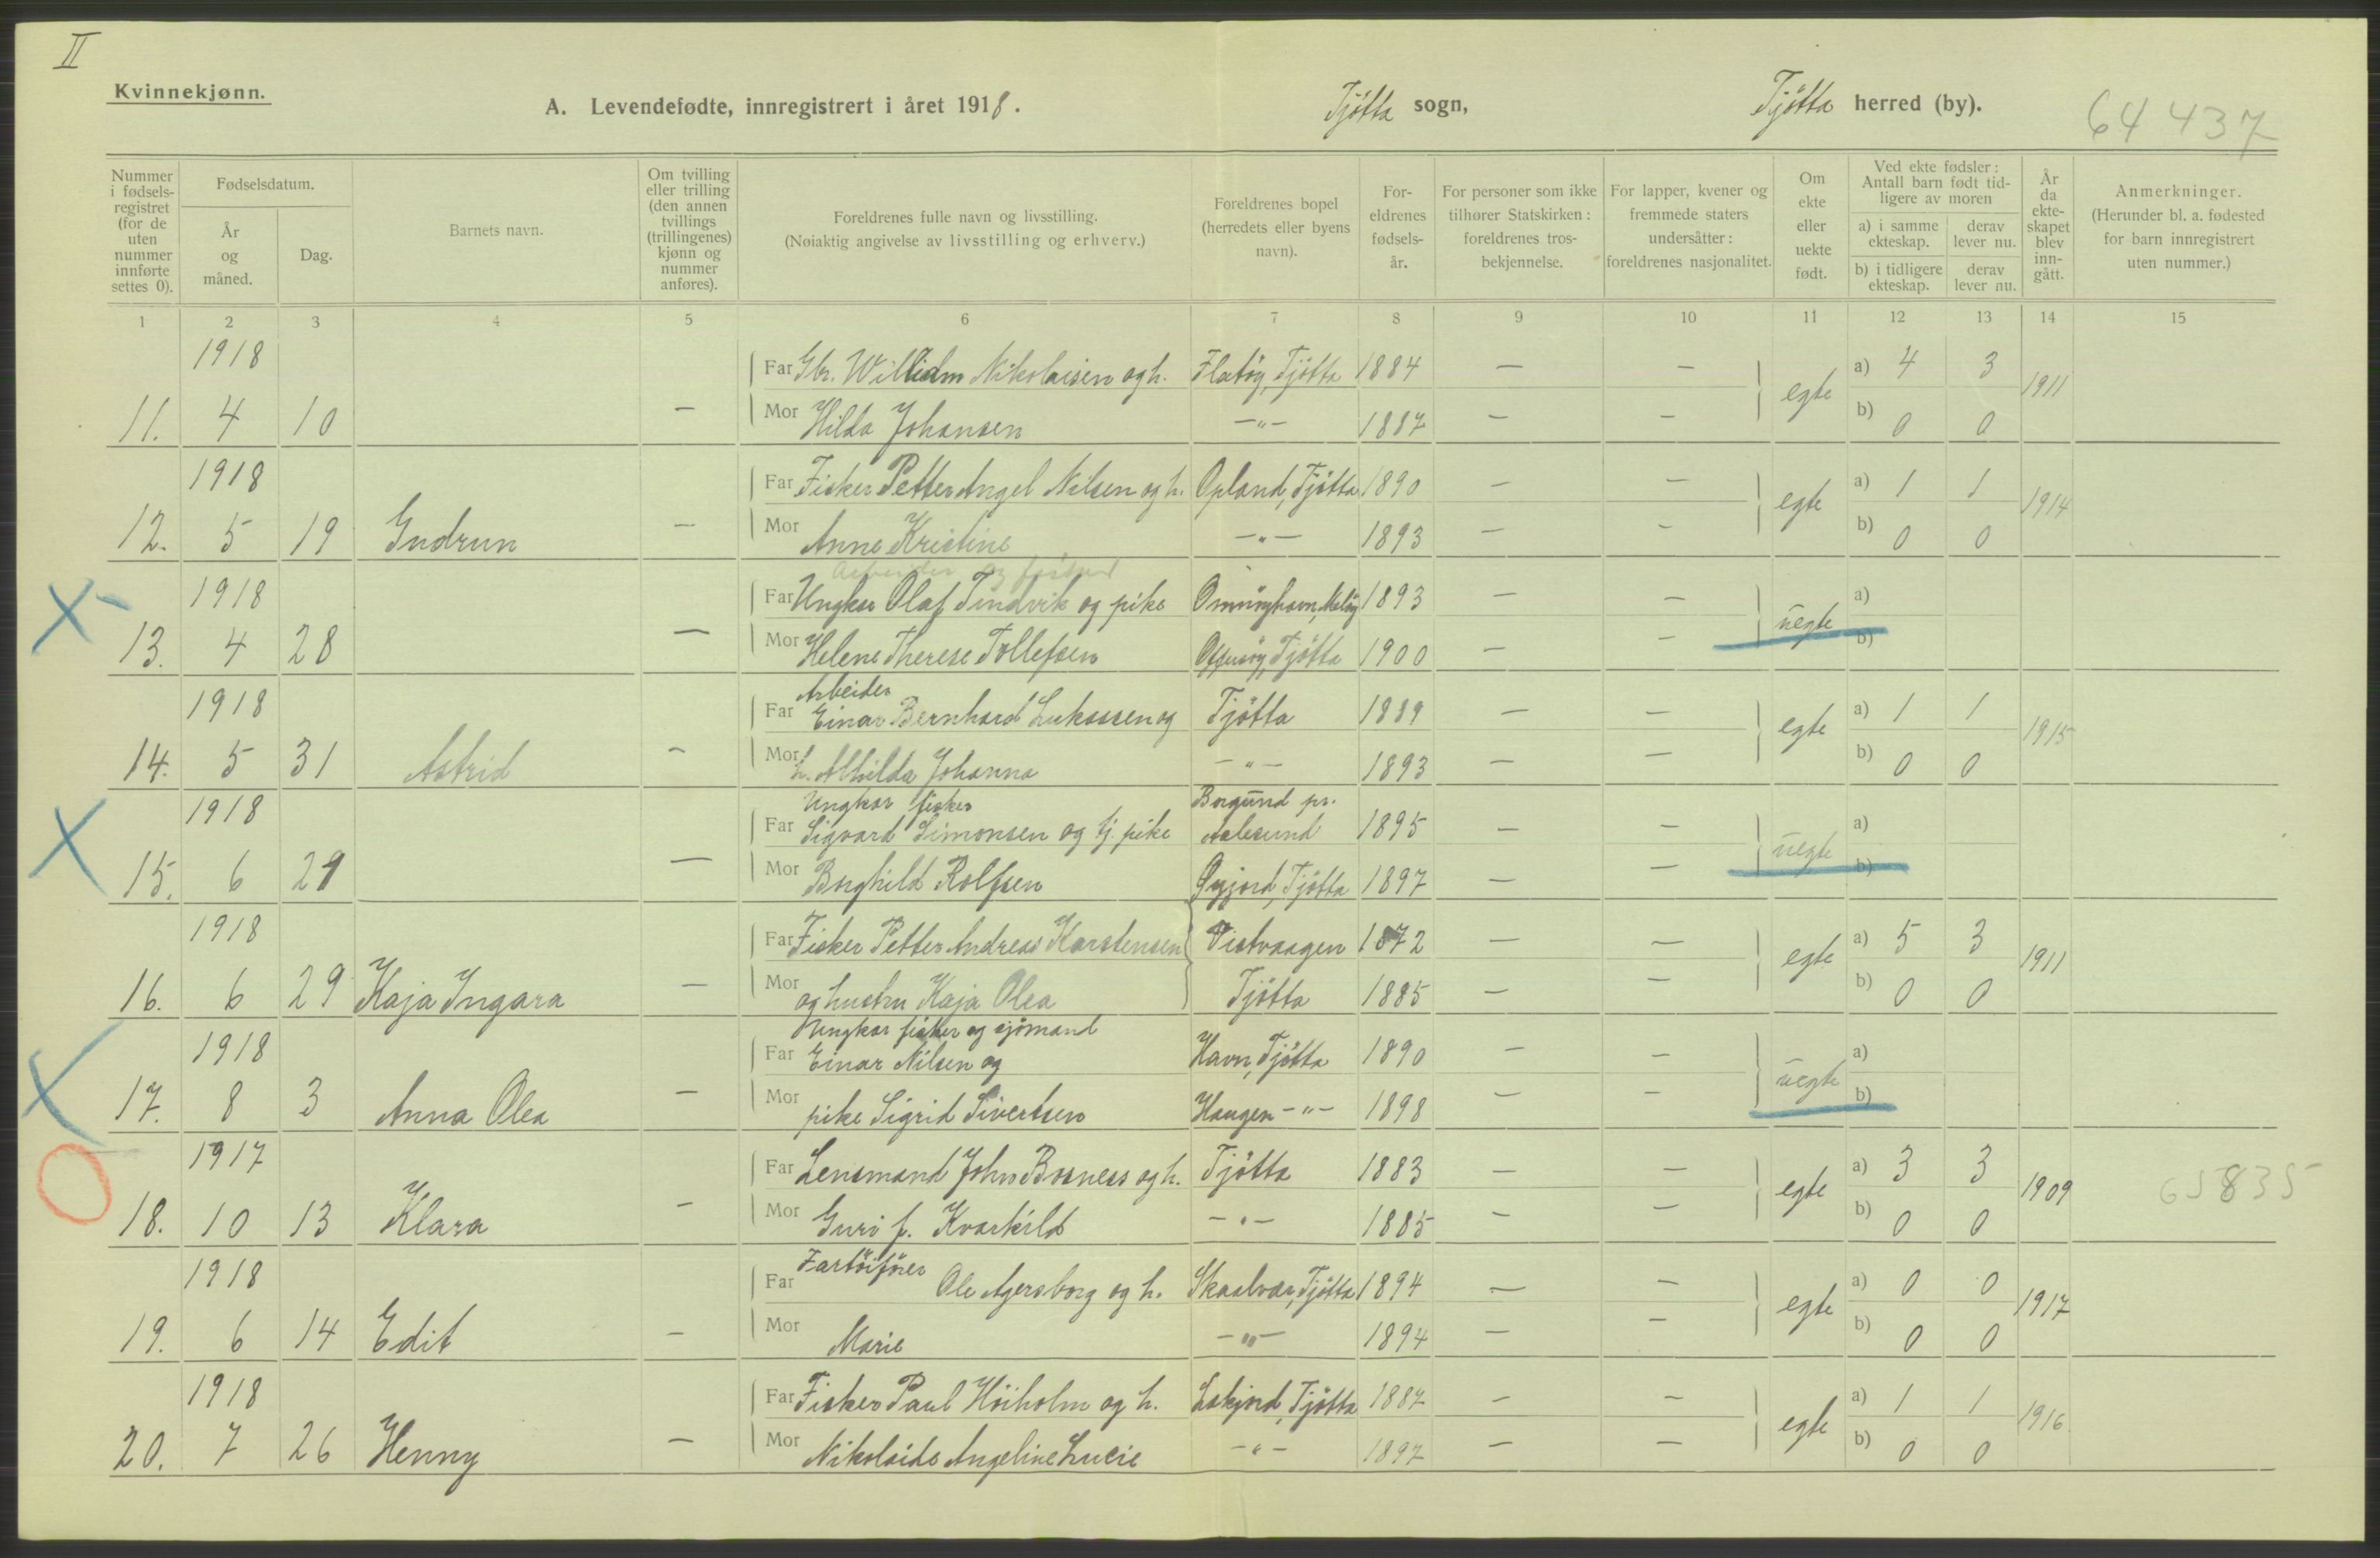 II
Kvinnekjønn.
A. Levendefødte, innregistrert i året 1918.
Tjøtta sogn,
Tjøtta herred (by).
64 437
Nummer i fødsels-registret (for de uten nummer innførte settes 0).
Fødselsdatum.
År og måned.
Dag.
Barnets navn.
Om tvilling eller trilling (den annen tvillings (trillingenes) kjønn og nummer anføres).
Foreldrenes fulle navn og livsstilling.
(Nøiaktig angivelse av livsstilling og erhverv.)
Foreldrenes bopel (herredets eller byens navn).
For-eldrenes fødsels-år.
For personer som ikke tilhører Statskirken: foreldrenes tros-bekjennelse.
For lapper, kvener og fremmede staters undersåtter: foreldrenes nasjonalitet.
Om ekte eller uekte født.
Ved ekte fødsler: Antall barn født tid-ligere av moren
a) i samme ekteskap.
derav lever nu.
b) i tidligere ekteskap.
derav lever nu.
År da ekte-skapet blev inn-gått.
Anmerkninger.
(Herunder bl. a. fødested for barn innregistrert uten nummer.)
1 2 3 4 5 6 7 8 9 10 11 12 13 14 15
1918 Far Gbr. Willidm Nikolaisen og h. Flatöy, Tjötta 1884 — — egte a) 4 3 1911
11. 4 10 — Mor Hilda Johansen —"— 1887 — — b) 0 0
1918 Far Fisker Petter Angel Nilsen og h. Opland, Tjötta 1890 — — egte a) 1 1 1914
12. 5 19 Gudrun — Mor Anne Kristine —"— 1893 — — b) 0 0
Arbeider og
1918 Far Ungkar Olaf Tindvik og pike Meløy 1893 — — uegte a)
13. 4 28 — Mor Helene Therese Tollefsen Offersøy, Tjötta 1900 — — b)
Arbeider
1918 Far Einar Bernhard Lukassen og Tjötta 1889 — — egte a) 1 1 1915
14. 5 31 Astrid — Mor h. Alhilda Johanna —"— 1893 — — b) 0 0
Ungkar fisker Borgund pr.
1918 Far Sigvard Simonsen og tj. pike Aalesund 1895 — — uegte a)
15. 6 29 — Mor Borghild Rolfsen Tjötta 1897 — — b)
1918 Far Fisker Petter Andreas Karstensen Vistvaagen 1872 — — egte a) 5 3 1911
16. 6 29 Kaja Ingara — Mor og hustru Kaja Olea Tjötta 1885 — — b) 0 0
Ungkar fisker og sjömand
1918 Far Einar Nilsen og Havn, Tjötta 1890 — — uegte a)
17. 8 3 Anna Olea — Mor pike Sigrid Sivertsen Haugen —"— 1898 — — b)
1917 Far Lensmand John Bosness og h. Tjötta 1883 — — egte a) 3 3 1909 65835
18. 10 13 Klara — Mor Guri f. Kvarkild —"— 1885 — — b) 0 0
Fartöiförer
1918 Far Ole Agersborg og h. Skaalvær, Tjötta 1894 — — egte a) 0 0 1917
19. 6 14 Edit — Mor Marie —"— 1894 — — b) 0 0
1918 Far Fisker Paul Höiholm og h. Tjötta 1887 — — egte a) 1 1 1916
20. 7 26 Henny — Mor Nikolaide Angeline Lucie —"— 1897 — — b) 0 0